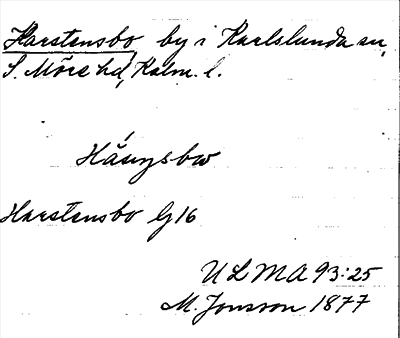 Harstensbo by i Karlslunda sn,
S. Möre hd, Kalm. l.
Harstensbo G16
ULMA 93:25
M. Jonsson 1877